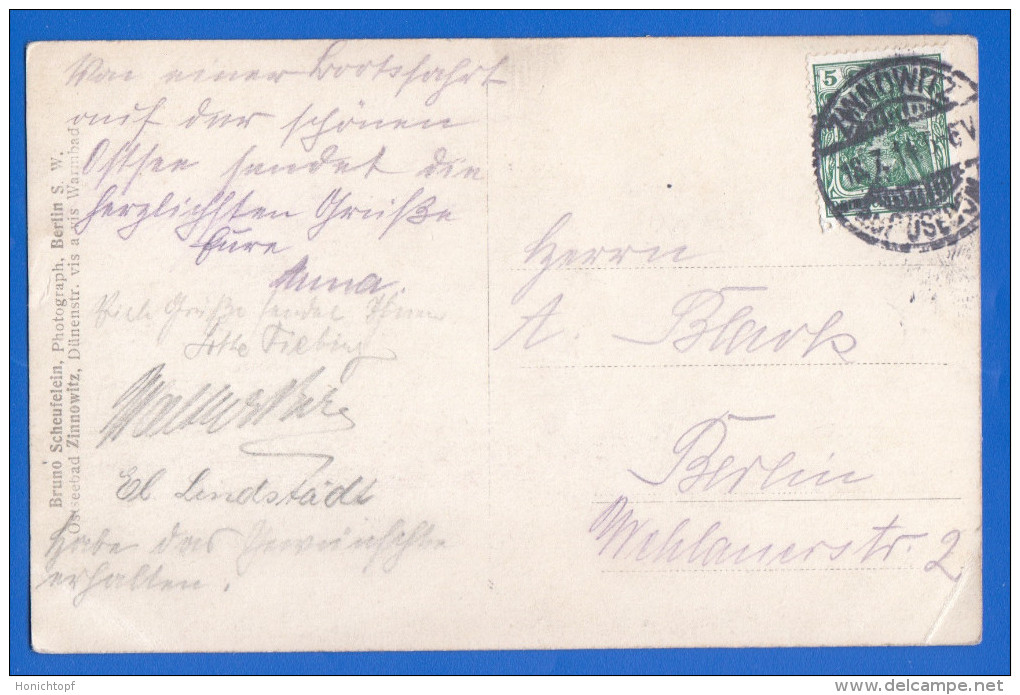 Von einer Bootsfahrt
auf der schönen
Ostsee sendet die
herzlichsten Grüße
Eure
Anna.
Viele Grüße sendet Ihnen
Lotte Fiebing
El. Lindstädt
Habe das Gewünschte
erhalten.
Bruno Scheufelein, Photograph, Berlin S. W.
Ostseebad Zinnowitz, Dünenstr. vis a vis Warmbad
5
ZINNOWITZ
Herrn
A. Blark
Berlin
Wehlauerstr. 2
Honichtopf
www.delcampe.net